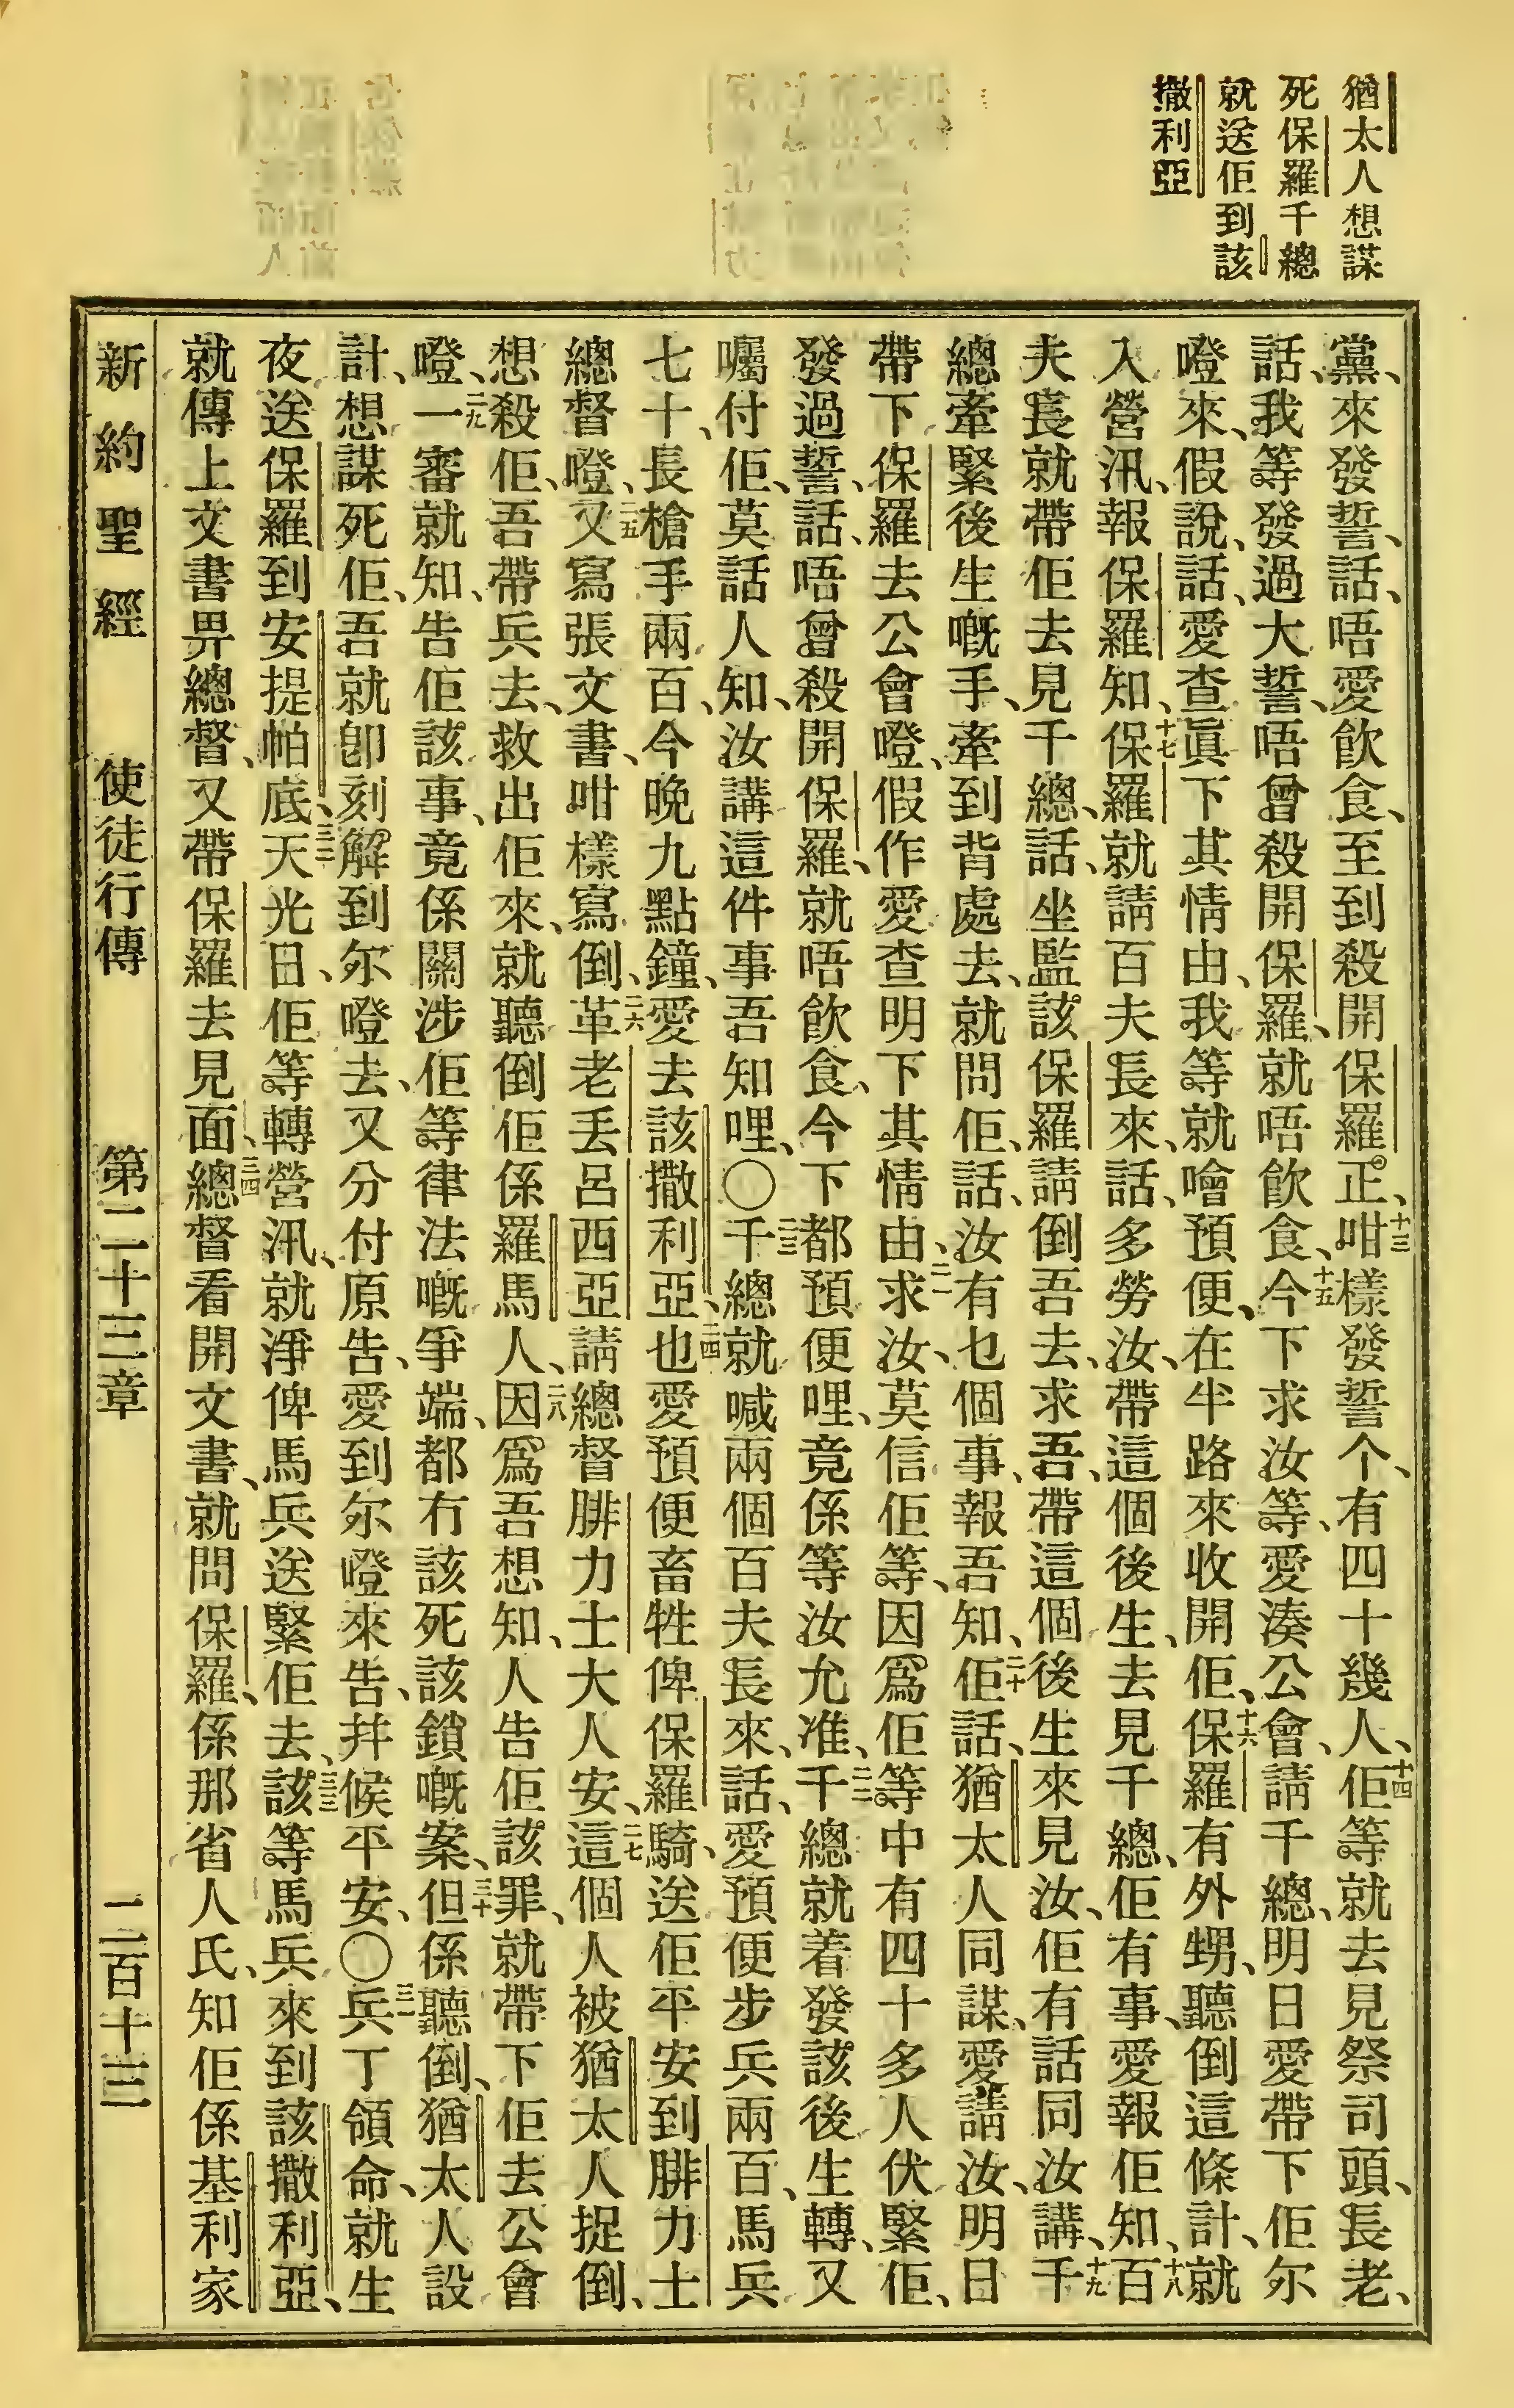 猶太人想謀
死保羅千總
就送佢到該
撒利亞
黨、來發誓、話、唔愛飮食、至到殺開保羅正、十三咁樣發誓个、有四十幾人、十四佢等就去見祭司頭、長老、
話、我等發過大誓、唔曾殺開保羅、就唔飮食、十五今下求汝等、愛湊公會、請千總、明日愛帶下佢尔
噔來、假說、話、愛查眞下其情由、我等就噲預便、在半路來收開佢、十六保羅有外甥、聽倒這條計、就
入營汛、報保羅知、十七保羅就請百夫長來、話、多勞汝、帶這個後生、去見千總、佢有事、愛報佢知、十八百
夫長就帶佢去見千總、話、坐監該保羅請倒吾去、求吾、帶這個後生來見汝、佢有話同汝講、十九千
總牽緊後生嘅手、牽到背處去、就問佢、話、汝有乜個事、報吾知、二十佢話、猶太人同謀、愛請汝、明日
帶下保羅去公會噔、假作愛查明下其情由、二一求汝、莫信佢等、因爲佢等中有四十多人伏緊佢、
發過誓、話、唔曾殺開保羅、就唔飮食、今下都預便哩、竟係等汝允准、二二千總就着發該後生轉、又
囑付佢、莫話人知、汝講這件事吾知哩、〇二三千總就喊兩個百夫長來、話、愛預便步兵兩百、馬兵
七十、長槍手兩百、今晚九點鐘、愛去該撒利亞、二四也愛預便畜牲俾保羅騎、送佢平安到腓力士
總督噔、二五又寫張文書、咁樣寫倒、二六革老丟呂西亞、請總督腓力士大人安、二七這個人被猶太人捉倒、
想殺佢、吾帶兵去、救出佢來、就聽倒佢係羅馬人、二八因爲吾想知、人告佢該罪、就帶下佢去公會
噔、二九一審就知、告佢該事、竟係關涉佢等律法嘅爭端、都冇該死該鎖嘅案、三十但係聽倒、猶太人設
計、想謀死佢、吾就卽刻解到尔噔去、又分付原告、愛到尔噔來告、幷候平安、〇三一兵丁領命、就生
夜送保羅到安提帕底、三二天光日、佢等轉營汛、就淨俾馬兵送緊佢去、三三該等馬兵來到該撒利亞、
就傳上文書畀總督、又帶保羅去見面、三四總督看開文書、就問保羅、係那省人氏、知佢係基利家
新約聖經　使徒行傳　第二十三章　二百十三